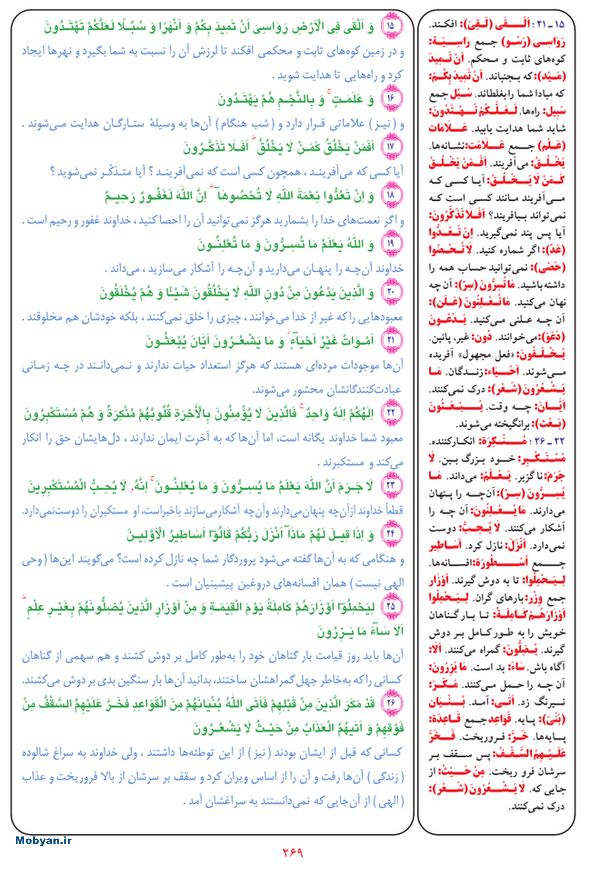 ۱۵ وَ اَلْقٰى فِى الْاَرْضِ رَوَاسِىَ اَنْ تَمِيدَ بِكُمْ وَ اَنْهٰرًا وَ سُبُلًا لَعَلَّكُمْ تَهْتَدُونَ
و در زمین کوه‌های ثابت و محکمی افکند تا لرزش آن را نسبت به شما بگیرد و نهرها ایجاد
کرد و راه‌هایی تا هدایت شوید .
۱۶ وَ عَلٰمٰتٍ ۚ وَ بِالنَّجْمِ هُمْ يَهْتَدُونَ
و ( نیز ) علاماتی قرار دارد و ( شب هنگام ) آن‌ها به وسیلهٔ ستارگان هدایت می‌شوند .
۱۷ اَفَمَنْ يَخْلُقُ كَمَنْ لَا يَخْلُقُ ۗ اَفَلَا تَذَكَّرُونَ
آیا کسی که می‌آفریند ، همچون کسی است که نمی‌آفریند ؟ آیا متذکّر نمی‌شوید ؟
۱۸ وَ اِنْ تَعُدُّوا نِعْمَةَ اللهِ لَا تُحْصُوهَا ۗ اِنَّ اللهَ لَغَفُورٌ رَحِيمٌ
و اگر نعمت‌های خدا را بشمارید هرگز نمی‌توانید آن را احصا کنید ، خداوند غفور و رحیم است .
۱۹ وَ اللهُ يَعْلَمُ مَا تُسِرُّونَ وَ مَا تُعْلِنُونَ
خداوند آن‌چه را پنهان می‌دارید و آن‌چه را آشکار می‌سازید ، می‌داند .
۲۰ وَ الَّذِينَ يَدْعُونَ مِنْ دُونِ اللهِ لَا يَخْلُقُونَ شَيْئًا وَ هُمْ يُخْلَقُونَ
معبودهایی را که غیر از خدا می‌خوانند ، چیزی را خلق نمی‌کنند ، بلکه خودشان هم مخلوقند .
۲۱ اَمْوَاتٌ غَيْرُ اَحْيَاۤءٍ ۚ وَ مَا يَشْعُرُونَ اَيَّانَ يُبْعَثُونَ
آن‌ها موجودات مرده‌ای هستند که هرگز استعداد حیات ندارند و نمی‌دانند در چه زمانی
عبادت‌کنندگانشان محشور می‌شوند.
۲۲ اِلٰهُكُمْ اِلٰهٌ وَاحِدٌ ۚ فَالَّذِينَ لَا يُؤْمِنُونَ بِالْاٰخِرَةِ قُلُوبُهُمْ مُنْكِرَةٌ وَ هُمْ مُسْتَكْبِرُونَ
معبود شما خداوند یگانه است، اما آن‌ها که به آخرت ایمان ندارند ، دل‌هایشان حق را انکار
می‌کند و مستکبرند .
۲۳ لَا جَرَمَ اَنَّ اللهَ يَعْلَمُ مَا يُسِرُّونَ وَ مَا يُعْلِنُونَ ۚ اِنَّهُ لَا يُحِبُّ الْمُسْتَكْبِرِينَ
قطعاً خداوند از آن‌چه پنهان می‌دارند و آن‌چه آشکار می‌سازند باخبر است، او مستکبران را دوست نمی‌دارد.
۲۴ وَ اِذَا قِيلَ لَهُمْ مَاذَاۤ اَنْزَلَ رَبُّكُمْ ۙ قَالُوۤا اَسَاطِيرُ الْاَوَّلِينَ
و هنگامی که به آن‌ها گفته می‌شود پروردگار شما چه نازل کرده است؟ می‌گویند این‌ها ( وحی
الهی نیست ) همان افسانه‌های دروغین پیشینیان است .
۲۵ لِيَحْمِلُوۤا اَوْزَارَهُمْ كَامِلَةً يَوْمَ الْقِيٰمَةِ وَ مِنْ اَوْزَارِ الَّذِينَ يُضِلُّونَهُمْ بِغَيْرِ عِلْمٍ ۗ
اَلَا سَاۤءَ مَا يَزِرُونَ
آن‌ها باید روز قیامت بار گناهان خود را به‌طور کامل بر دوش کشند و هم سهمی از گناهان
کسانی را که به‌خاطر جهل گمراهشان ساختند، بدانید آن‌ها بار سنگین بدی بر دوش می‌کشند.
۲۶ قَدْ مَكَرَ الَّذِينَ مِنْ قَبْلِهِمْ فَاَتَى اللهُ بُنْيَانَهُمْ مِنَ الْقَوَاعِدِ فَخَرَّ عَلَيْهِمُ السَّقْفُ مِنْ
فَوْقِهِمْ وَ اَتٰيهُمُ الْعَذَابُ مِنْ حَيْثُ لَا يَشْعُرُونَ
کسانی که قبل از ایشان بودند ( نیز ) از این توطئه‌ها داشتند ، ولی خداوند به سراغ شالوده
( زندگی ) آن‌ها رفت و آن را از اساس ویران کرد و سقف بر سرشان از بالا فروریخت و عذاب
( الهی ) از آن‌جایی که نمی‌دانستند به سراغشان آمد .
۱۵ ـ ۲۱ : اَلْقٰى (لَقِیَ): افکند.
رَوَاسِی (رَسَوَ) جمع رَاسِیَة:
کوه‌های ثابت و محکم. اَنْ تَمِیدَ
(مَیَدَ): که بجنباند. اَنْ تَمِیدَ بِکُمْ:
که مبادا شما را بغلطاند. سُبُل جمع
سَبِیل: راه‌ها. لَعَلَّکُمْ تَهْتَدُونَ:
شاید شما هدایت یابید. عَلَامَات
(عَلَم) جمع عَلَامَت: نشانه‌ها.
یَخْلُقُ: می‌آفریند. اَفَمَنْ یَخْلُقُ
کَمَنْ لَا یَخْلُقُ: آیا کسی که
می‌آفریند مانند کسی است که
نمی‌تواند بیافریند؟ اَفَلَا تَذَکَّرُونَ:
آیا پس پند نمی‌گیرید. اِنْ تَعُدُّوا
(عَدَّ): اگر شماره کنید. لَا تُحْصُوا
(حَصَی): نمی‌توانید حساب همه را
داشته باشید. مَا تُسِرُّونَ (سِرّ): آن چه
نهان می‌کنید. مَا تُعْلِنُونَ (عَلَن):
آن چه علنی می‌کنید. یَدْعُونَ
(دَعَوَ): می‌خوانند. دُون: غیر، پائین.
یُخْلَقُونَ: «فعل مجهول» آفریده
می‌شوند. اَحْیَاء: زندگان. مَا
یَشْعُرُونَ (شَعَرَ): درک نمی‌کنند.
اَیَّانَ: چه وقت. یُبْعَثُونَ
(بَعَثَ): برانگیخته می‌شوند.
۲۲ ـ ۲۶ : مُنْکِرَة: انکارکننده.
مُسْتَکْبِر: خود بزرگ بین. لَا
جَرَمَ: ناگزیر. یَعْلَمُ: می‌داند. مَا
یُسِرُّونَ (سِرّ): آن‌چه را پنهان
می‌دارند. مَا یُعْلِنُونَ: آن چه را
آشکار می‌کنند. لَا یُحِبُّ: دوست
نمی‌دارد. اَنْزَلَ: نازل کرد. اَسَاطِیر
جمع اُسْطُورَة: افسانه‌ها.
لِیَحْمِلُوا: تا به دوش گیرند. اَوْزَار
جمع وِزْر: بارهای گران. لِیَحْمِلُوا
اَوْزَارَهُمْ کَامِلَةً: تا بار گناهان
خویش را به طور کامل بر دوش
گیرند. یُضِلُّونَ: گمراه می‌کنند. اَلَا:
آگاه باش. سَاءَ: بد است. مَا یَزِرُونَ:
آن چه را حمل می‌کنند. مَکَرَ:
نیرنگ زد. اَتَی: آمد. بُنْیَان
(بَنَیَ): پایه. قَوَاعِد جمع قَاعِدَة:
پایه‌ها. خَرَّ: فروریخت. فَخَرَّ
عَلَیْهِمُ السَّقْفُ: پس سقف بر
سرشان فرو ریخت. مِنْ حَیْثُ: از
جایی که. لَا یَشْعُرُونَ (شَعَرَ):
درک نمی‌کنند.
۲۶۹
Mobyan.ir